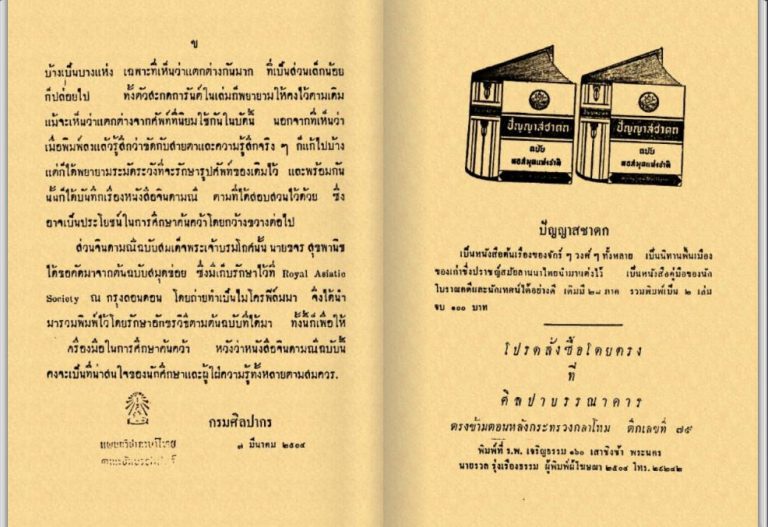 ข
บ้างเป็นบางแห่ง เฉพาะที่เห็นว่าแตกต่างกันมาก ที่เป็นส่วนเล็กน้อย
ก็ปล่อยไป ทั้งตัวสะกดการันต์ในเล่มก็พยายามให้คงไว้ตามเดิม
แม้จะเห็นว่าแตกต่างจากศัพท์ที่นิยมใช้กันในบัดนี้ นอกจากที่เห็นว่า
เมื่อพิมพ์ลงแล้วรู้สึกว่าขัดกับสายตาและความรู้สึกจริง ๆ ก็แก้ไปบ้าง
แต่ก็ได้พยายามระมัดระวังที่จะรักษารูปศัพท์ของเดิมไว้ และพร้อมกัน
นั้นก็ได้บันทึกเรื่องหนังสือจินดามณี ตามที่ได้สอบสวนไว้ด้วย ซึ่ง
อาจเป็นประโยชน์ในการศึกษาค้นคว้าโดยกว้างขวางต่อไป
ส่วนจินดามณีฉบับสมเด็จพระเจ้าบรมโกศนั้น นายขจร สุขพานิช
ได้ขอคัดมาจากต้นฉบับสมุดข่อย ซึ่งมีเก็บรักษาไว้ที่ Royal Asiatic
Society ณ กรุงลอนดอน โดยถ่ายทำเป็นไมโครฟิล์มมา จึงได้นำ
มารวมพิมพ์ไว้โดยรักษาอักขรวิธีตามต้นฉบับที่ได้มา ทั้งนี้ก็เพื่อให้
เครื่องมือในการศึกษาค้นคว้า หวังว่าหนังสือจินดามณีฉบับนี้
คงจะเป็นที่น่าสนใจของนักศึกษาและผู้ใฝ่ความรู้ทั้งหลายตามสมควร.
กรมศิลปากร
๗ มีนาคม ๒๕๐๔
แผนกวิชาภาษาไทย
ปัญญาสชาดก
ฉบับ
หอสมุดแห่งชาติ
ปัญญาสชาดก
ฉบับ
หอสมุดแห่งชาติ
ปัญญาสชาดก
เป็นหนังสือต้นเรื่องของจักร์ ๆ วงศ์ ๆ ทั้งหลาย เป็นนิทานพื้นเมือง
ของเก่าซึ่งปราชญ์สมัยลานนาไทยนำมาแต่งไว้ เป็นหนังสือคู่มือของนัก
โบราณคดีและนักเทศน์ได้อย่างดี เดิมมี ๒๘ ภาค รวมพิมพ์เป็น ๒ เล่ม
จบ ๑๐๐ บาท
โปรดสั่งซื้อโดยตรง
ที่
ศิลปาบรรณาคาร
ตรงข้ามตอนหลังกระทรวงกลาโหม ตึกเลขที่ ๗๕
พิมพ์ที่ ร.พ. เจริญธรรม ๑๖๐ เสาชิงช้า พระนคร
นายรวล รุ่งเรืองธรรม ผู้พิมพ์ผู้โฆษณา ๒๕๐๔ โทร. ๒๔๒๔๒